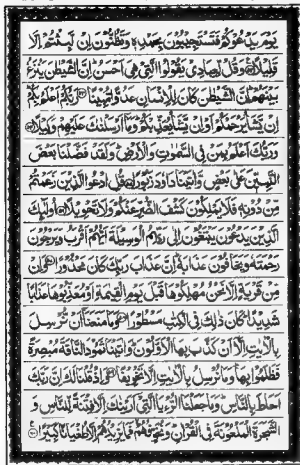 يوم يدعوكم فتستجيبون بحمده وتظنون ان لبثتم الا
قليلا وقل لعبادي يقولوا التي هي احسن ان الشيطن ينزغ
بينهم ان الشيطن كان للانسان عدوا مبينا ربكم اعلم بكم
ان يشا يرحمكم او ان يشا يعذبكم وما ارسلنك عليهم وكيلا
وربك اعلم بمن في السموت والارض ولقد فضلنا بعض
النبين على بعض واتينا داود زبورا قل ادعوا الذين زعمتم
من دونه فلا يملكون كشف الضر عنكم ولا تحويلا اولئك
الذين يدعون يبتغون الى ربهم الوسيلة ايهم اقرب ويرجون
رحمته ويخافون عذابه ان عذاب ربك كان محذورا وان
من قرية الا نحن مهلكوها قبل يوم القيمة او معذبوها عذابا
شديدا كان ذلك في الكتب مسطورا وما منعنا ان نرسل
بالايت الا ان كذب بها الاولون واتينا ثمود الناقة مبصرة
فظلموا بها وما نرسل بالايت الا تخويفا واذ قلنا لك ان ربك
احاط بالناس وما جعلنا الرءيا التي ارينك الا فتنة للناس و
الشجرة الملعونة في القران ونخوفهم فما يزيدهم الا طغيانا كبيرا